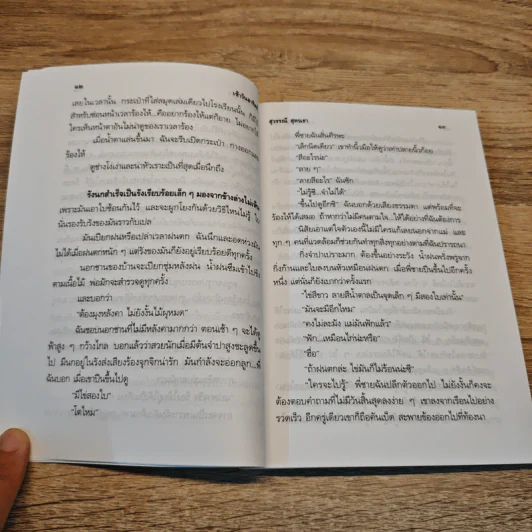 ๑๒
เลยในเวลานั้น กระเป๋าที่ใส่สมุดเล่มเดียวไปโรงเรียนนั้น ก็มีไว้
สำหรับซ่อนหน้าเวลาร้องไห้...คืออยากร้องไห้แต่ก็อาย ไม่อยากให้
ใครเห็นหน้าตาอันไม่น่าดูของเราเวลาร้อง
เมื่อน้ำตาแล่นขึ้นมา ฉันจะรีบเปิดกระเป๋า กางออกแล้ว
ร้องไห้
ดูช่างโง่เง่าและน่าหัวเราะเป็นที่สุดเมื่อนึกถึง
รังนกสำเร็จเป็นรังเรียบร้อยเล็ก ๆ มองจากข้างล่าง
เพราะมันเอาใบซ้อนกันไว้ และจะผูกโยงกันด้วยวิธีไหนไม่รู้
นั่นรองรับรังของมันราวกับเปล
มันเปียกฝนหรือเปล่าเวลาฝนตก ฉันนึกและอดห่วงมัน
ไม่ได้เมื่อฝนตกหนัก ๆ แต่รังมันก็ยังอยู่เรียบร้อยดีทุกครั้ง
นอกชานของบ้านจะเปียกชุ่มหลังฝน น้ำฝนซึมเข้าไป
ตามเนื้อไม้ พ่อมักจะสำรวจดูทุกครั้ง
และบอกว่า
"ต้องมุงหลังคา ไม่งั้นไม้ผุหมด"
ฉันชอบนอกชานที่ไม่มีหลังคามากกว่า ตอนเช้า ๆ จะได้ดู
ฟ้าสูง ๆ กว้างไกล บอกแล้วว่าสวยนักเมื่อมีต้นจำปาสูงชะลูดขึ้น
ไป มีนกอยู่ในรังส่งเสียงร้องจุกจิกน่ารัก มันกำลังจะออกลูก...พี่
ฉันบอก เมื่อเขาปีนขึ้นไปดู
"มีไข่สองใบ"
"โตไหม"
สุวรรณี สุคนธา
๑๓
พี่ชายฉันสั่นศีรษะ
"เล็กนิดเดียว" เขาทำนิ้วมือให้ดูว่าเท่าปลายนิ้วก้อย
"สีอะไรน่ะ"
"ลาย ๆ"
"ลายสีอะไร" ฉันซัก
"ไม่รู้ซี...จำไม่ได้"
"ขึ้นไปดูอีกซี" ฉันบอกด้วยเสียงธรรมดา แต่พร้อมที่จะ
ร้องไห้ได้เสมอ ถ้าหากว่าไม่มีคนตามใจ...ให้ได้อย่างที่ฉันต้องการ
นิสัยเอาแต่ใจตัวเองนี้ไม่มีใครแก้เลยนอกจากแม่ และ
ทุก ๆ คนที่แวดล้อมก็ช่วยกันทำทุกสิ่งทุกอย่างตามที่ฉันปรารถนา
กิ่งจำปาเปราะมาก ต้องขึ้นอย่างระวัง น้ำฝนพรั่งพรูจาก
กิ่งก้านและใบลงบนหัวเหมือนฝนตก เมื่อพี่ชายปีนขึ้นไปอีกครั้ง
หนึ่ง แต่นั่นก็ยังเบากว่าครั้งแรก
"ไข่สีขาว ลายสีน้ำตาลเป็นจุดเล็ก ๆ มีสองใบเท่านั้น"
"มันจะมีอีกไหม"
"คงไม่ละมัง แม่มันฟักแล้ว"
"ฟัก...เหมือนไก่น่ะหรือ"
"ฮื่อ"
"ถ้าฝนตกล่ะ ไข่มันก็ไม่ร้อนน่ะซี"
"ใครจะไปรู้" พี่ชายฉันปลีกตัวออกไป ไม่ยังงั้นก็คงจะ
ต้องตอบคำถามที่ไม่มีวันสิ้นสุดลงง่าย ๆ เขาลงจากเรือนไปอย่าง
รวดเร็ว อีกครู่เดียวเขาก็ถือคันเบ็ด สะพายข้องออกไปที่ท้องนา